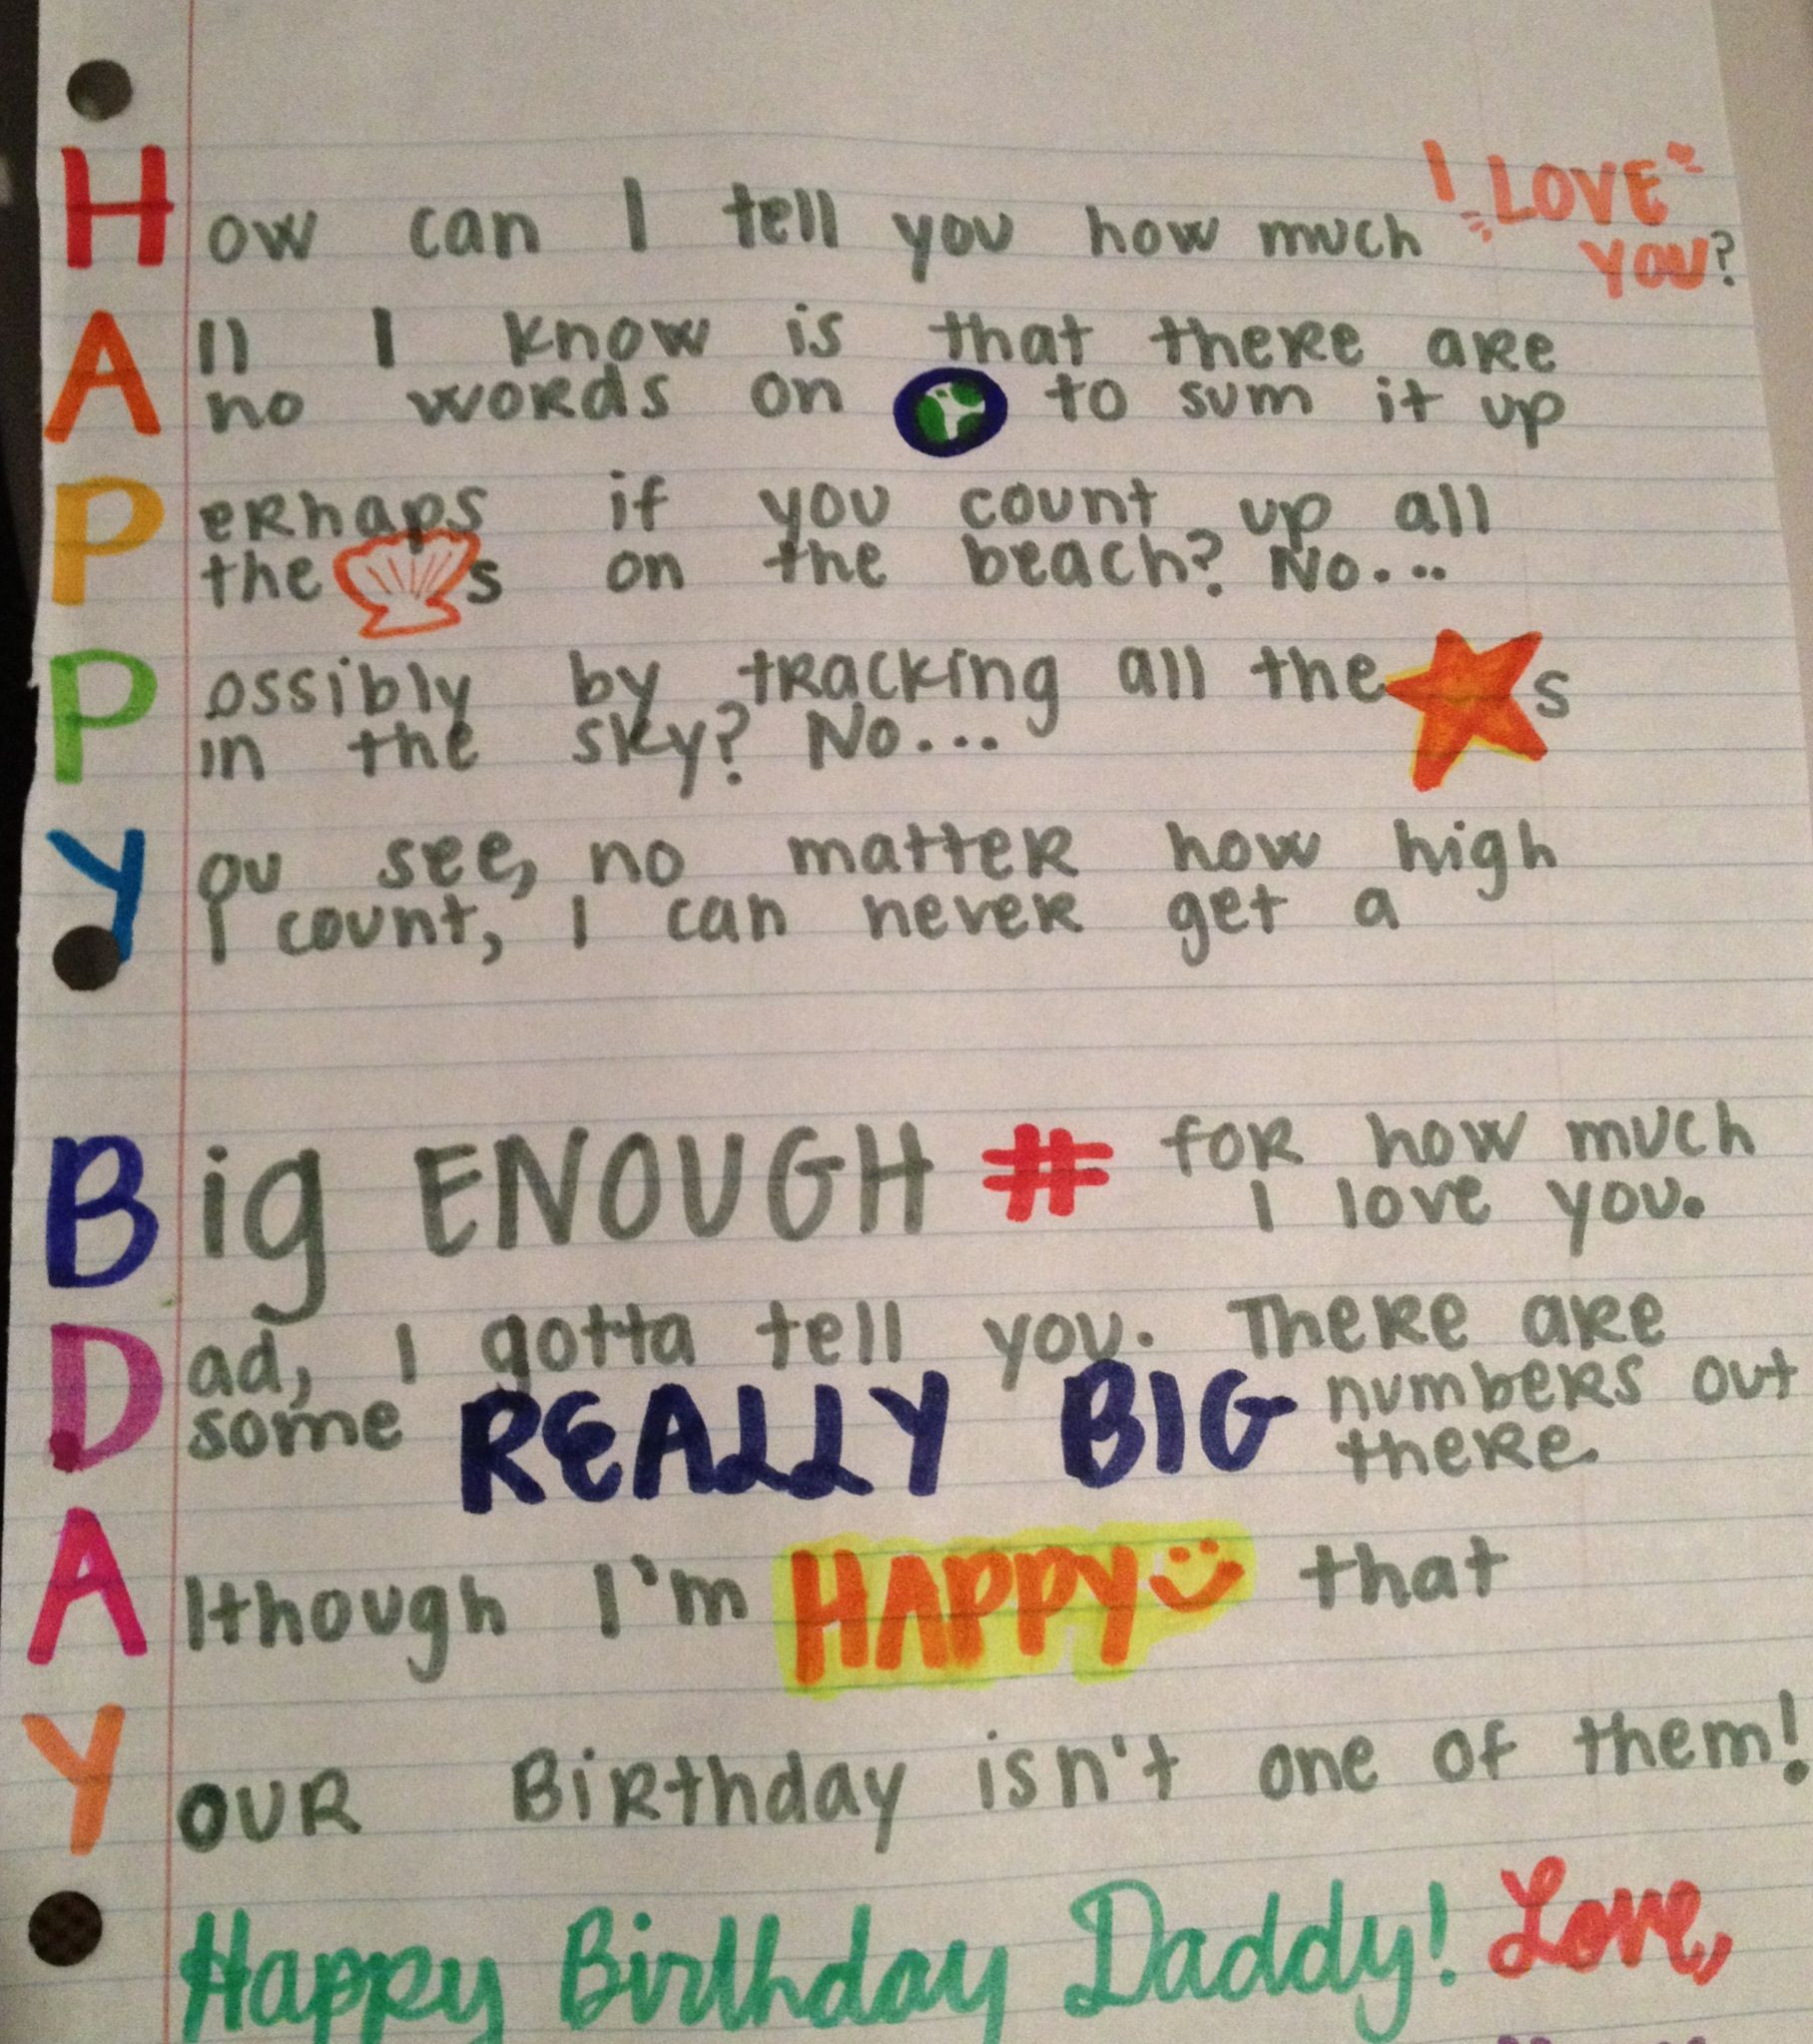 How can I tell you how much I LOVE YOU?
All I know is that there are
no words on to sum it up
Perhaps if you count up all
the s on the beach? No...
Possibly by tracking all the s
in the sky? No...
You see, no matter how high
I count, I can never get a
Big ENOUGH # for how much
I love you.
Dad, I gotta tell you. There are
some REALLY BIG numbers out
there.
Although I'm HAPPY that
Your Birthday isn't one of them!
Happy Birthday Daddy! Love,